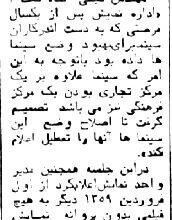 واداره نمایش پس از یکسال
فرصتی که به دست اندرکاران
سینما برای بهبود وضع سینما
ها داده بود باتوجه به این
امر که سینما علاوه بر یک
مرکز تجاری بودن یک مرکز
فرهنگی نیز می باشد تصمیم
گرفت تا اصلاح وضع این
سینما ها آنها را تعطیل اعلام
کنده.
دراین جلسه همچنین مدیر
واحد نمایش اعلام کرد از اول
فروردین ۱۳۵۹ دیگر به هیچ
فیلمی بدون پروانه نمایش